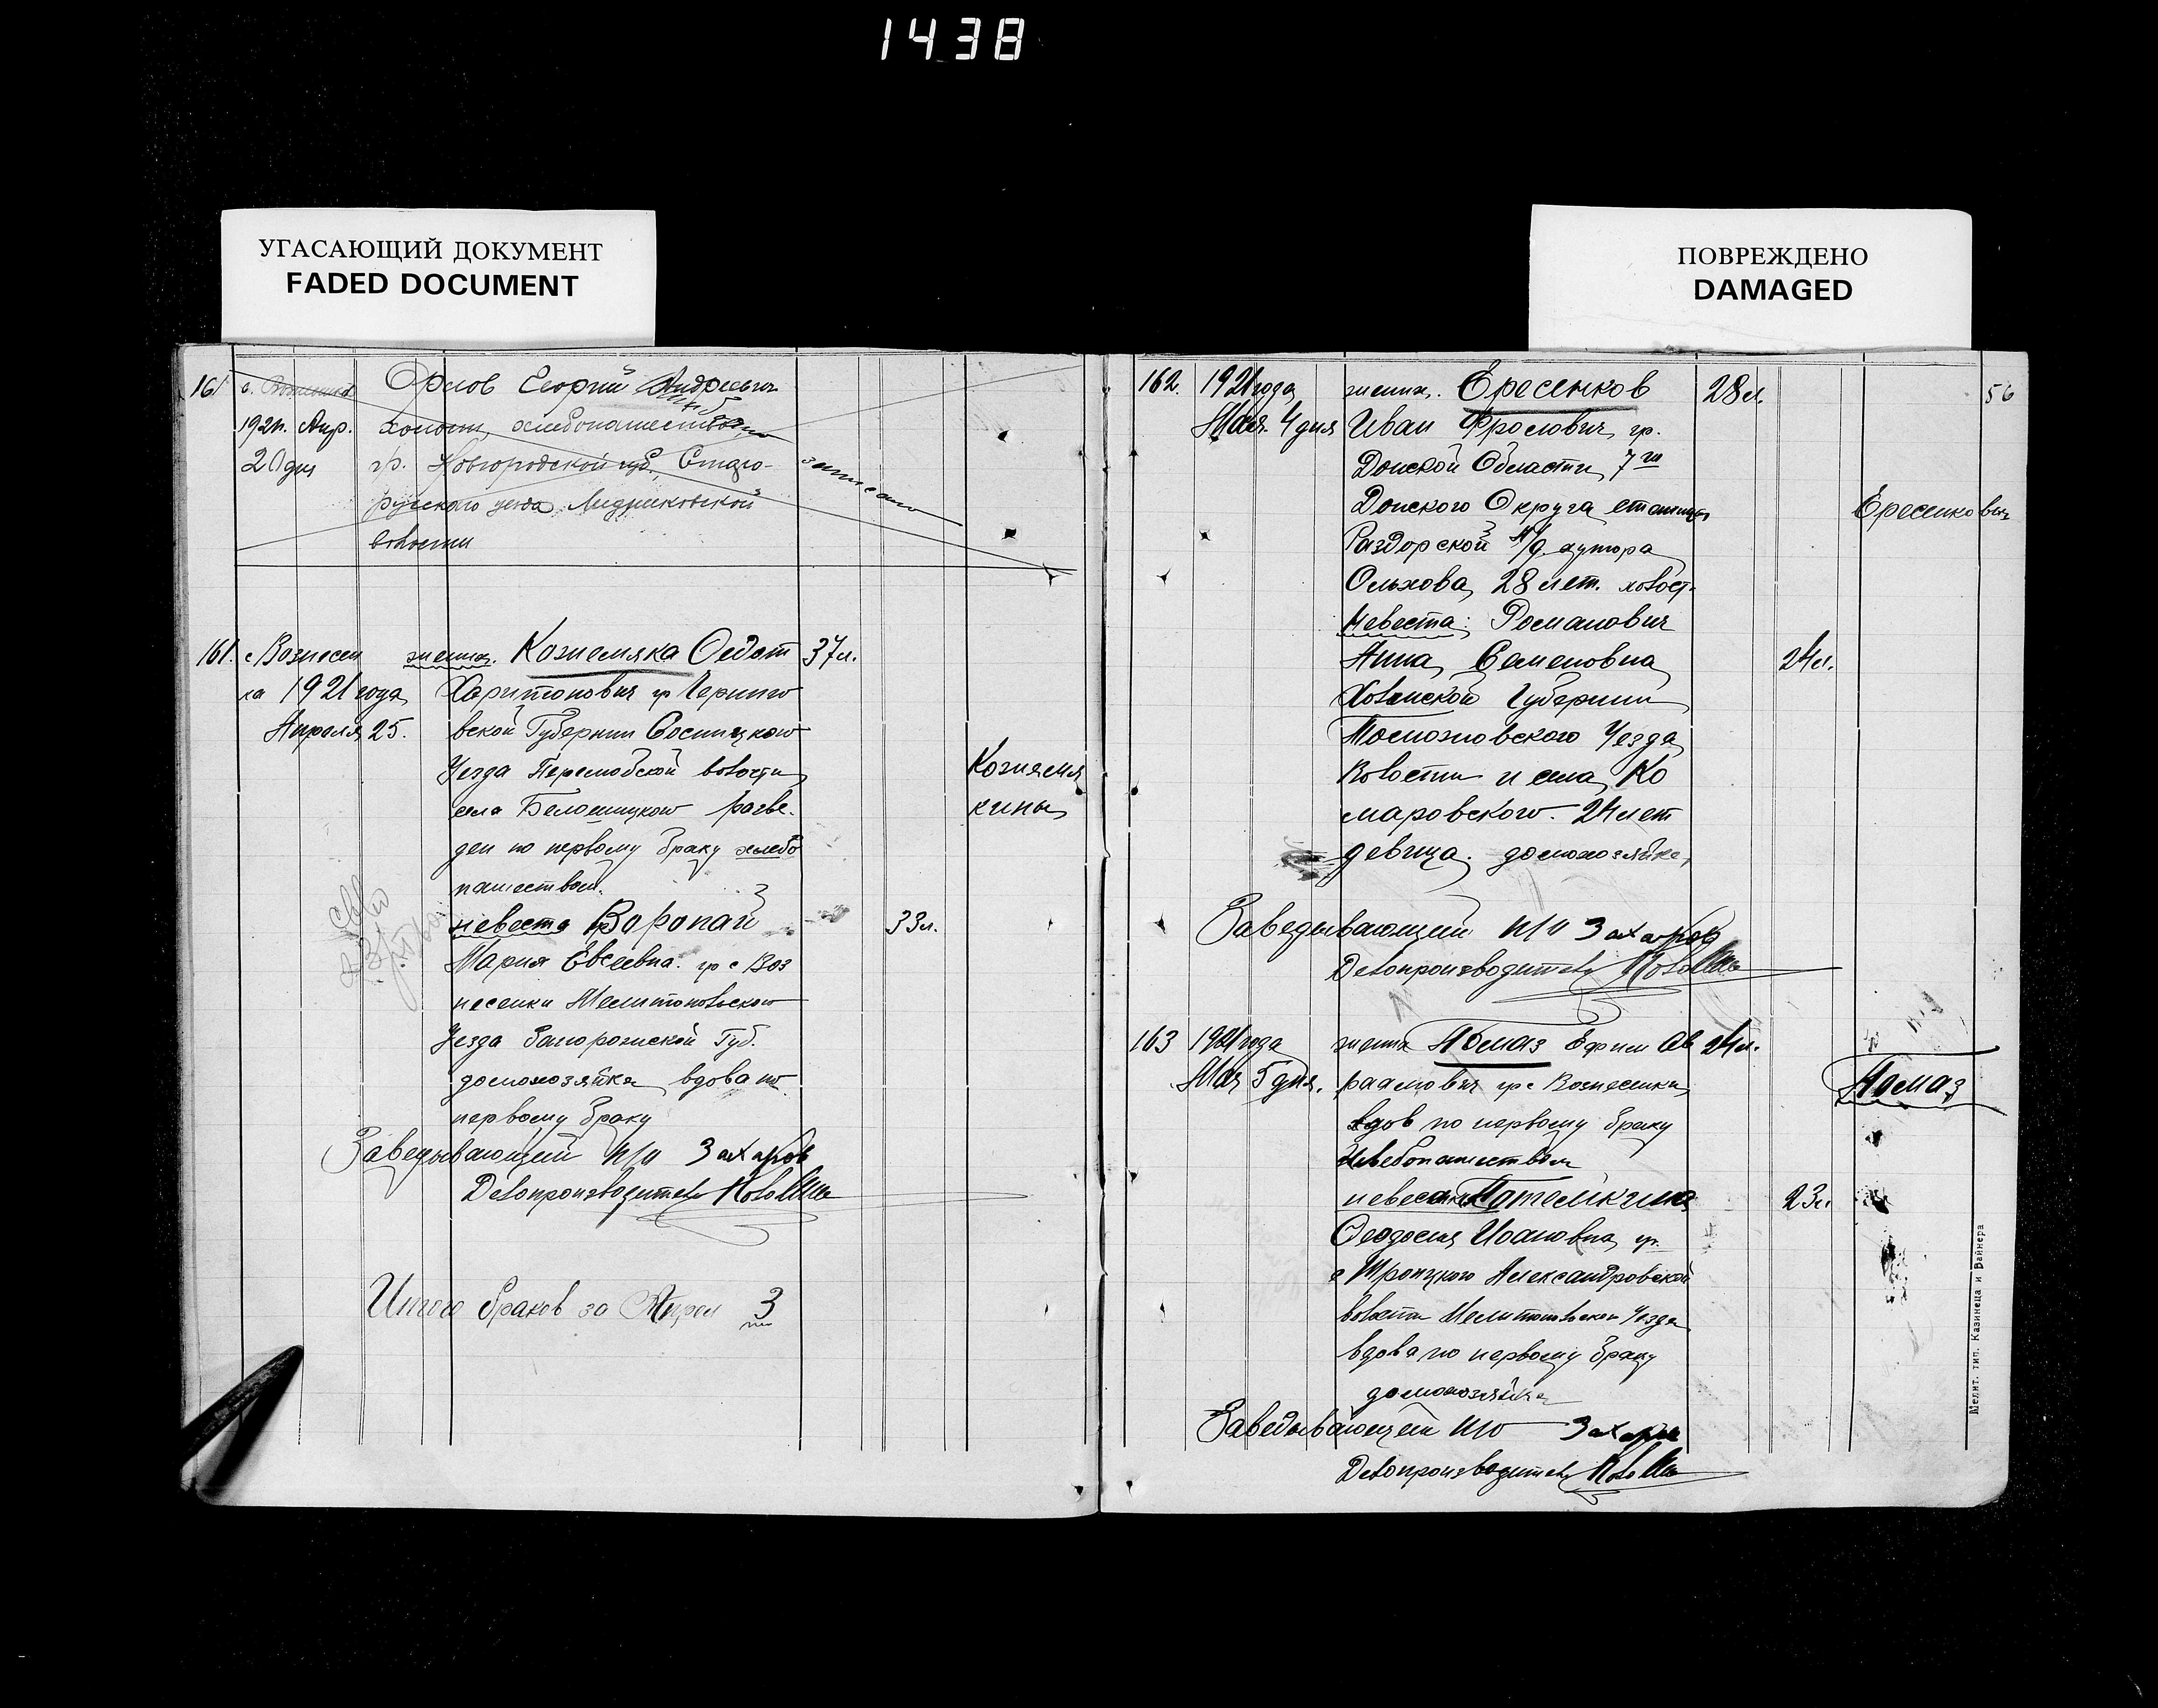 1438
УГАСАЮЩИЙ ДОКУМЕНТ
FADED DOCUMENT
ПОВРЕЖДЕНО
DAMAGED
161
1921. Апр.
20 дня
Орлов Георгий Андреевич
холост, хлебопашество
гр. Новгородской губ. Старо-
русского уезда
волости
записано
161. с Вознесен
ка 1921 года
Апреля 25.
жених. Кожемяка Федот 37 л.
Харитонович гр Черниго
вской Губернии Сосницкого
Уезда волости
села разве-
ден по первому браку хлебо
пашеством.
невеста Воропай 33 л.
Мария Евсеевна. гр с Воз
несенки Мелитопольского
Уезда Запорожской Губ.
домохозяйка вдова по
первому браку
Кожемя
кины
Заведывающий п/о Захаров
Делопроизводитель
Итого браков за Апрел 3
56
162. 1921 года
Мая 4 дня
жених. Ересенков 28 л.
Иван Фролович гр.
Донской Области, 7 го
Донского Округа станицы
Раздорской н/д хутора
Ольхова, 28 лет. холост.
невеста: Романович
Анна Семеновна 24 л.
Губернии
Уезда
Волости и села Ко
маровского. 24 лет
девица. домохозяйка,
Ересенкович
Заведывающий п/о Захаров
Делопроизводитель
163 1921 года
Мая 5 дня.
жених Номаз Ефим Ав 24 л.
раамович гр с Вознесенки
вдов по первому браку
Хлебопашеством
невеста Потемкина 23 л
Феодосия Ивановна гр.
с Троицкого Александровской
волости Мелитопольского Уезда
вдова по первому браку
домохозяйка
Номаз
Заведывающий п/о Захаров
Делопроизводитель
Мелит. тип. Казинеца и Вайнера